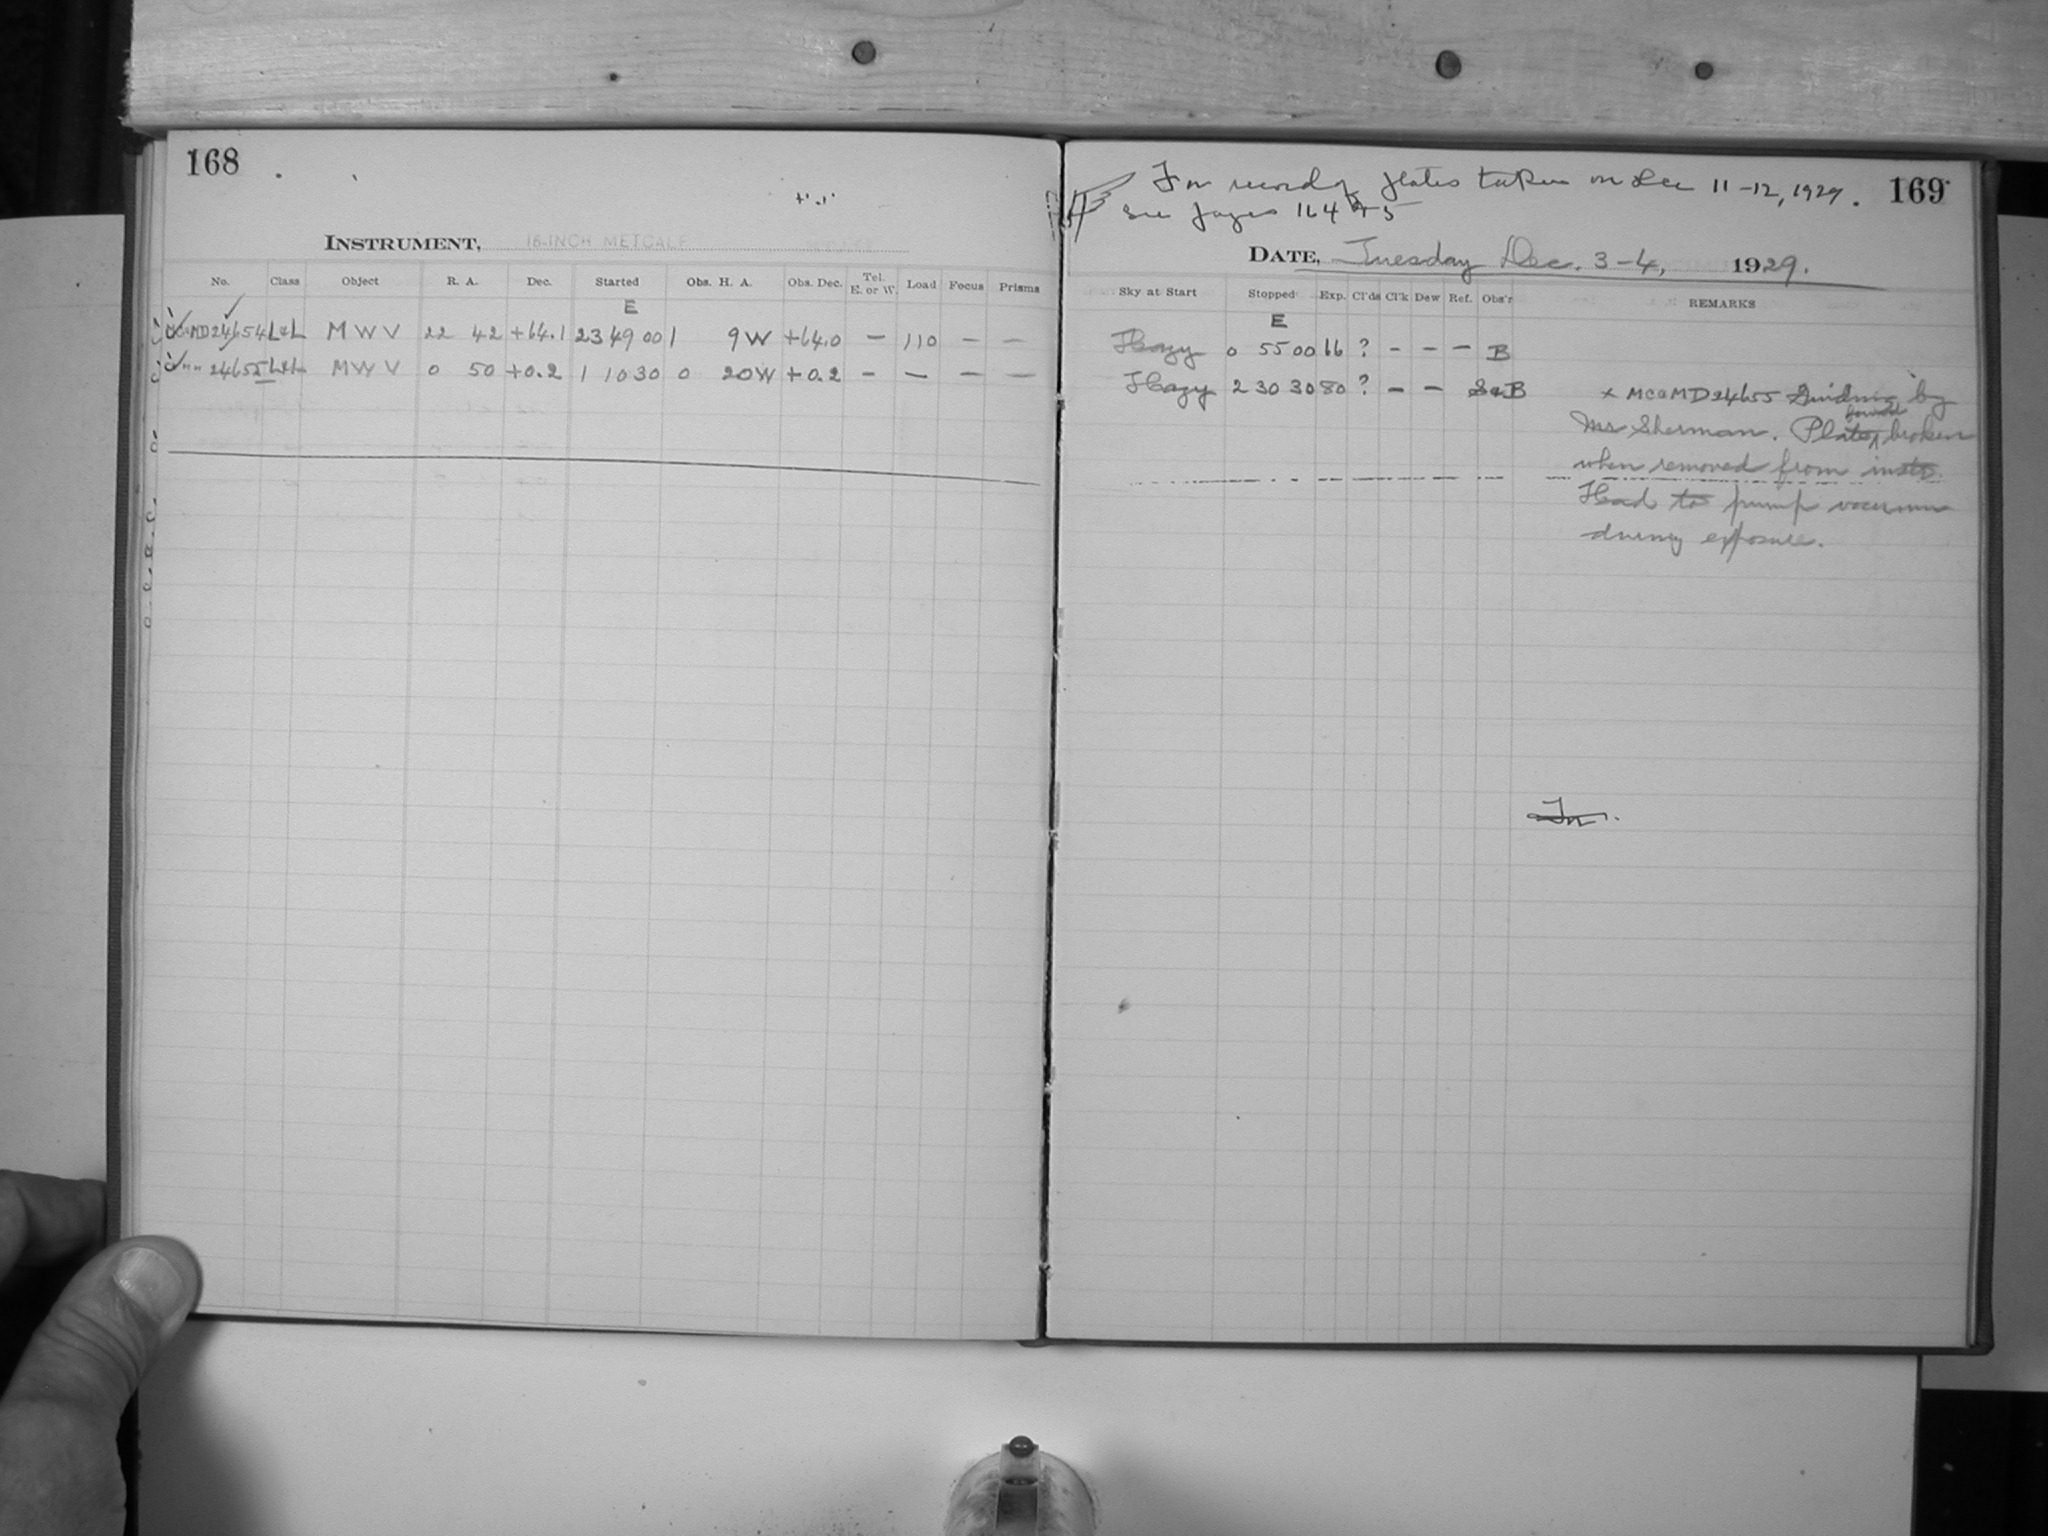 168
INSTRUMENT, 16-INCH METCALF
No. Class Object R. A. Dec. Started Obs. H. A. Obs. Dec. Tel. E. or W. Load Focus Prisms
E
MC&MD24654 L&L MWV 22 42 +64.1 23 49 00 1 9W +64.0 — 110 — —
" " 24655 L&L MWV 0 50 +0.2 1 10 30 0 20W +0.2 — — — —
For record of plates taken on Dec 11-12, 1929. 169
see pages 164 & 5
DATE, Tuesday Dec. 3-4, 1929.
Sky at Start Stopped Exp. Cl'ds Cl'k Dew Ref. Obs'r REMARKS
E
Hazy 0 55 00 66 ? - - - B
Hazy 2 30 30 80 ? - - S&B x MC&MD24655 Guiding by
Mr Sherman. Plate found broken
when removed from instr.
Had to pump vacuum
during exposure.